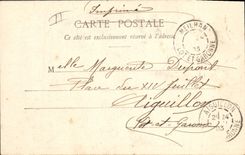 Imprimé
CARTE POSTALE
Ce côté est exclusivement réservé à l'adresse
MEILHAN
LOT ET GARONNE
Melle Marguerite Dupont
Place du XIV Juillet
Aiguillon
Lot et Garonne
AIGUILLON